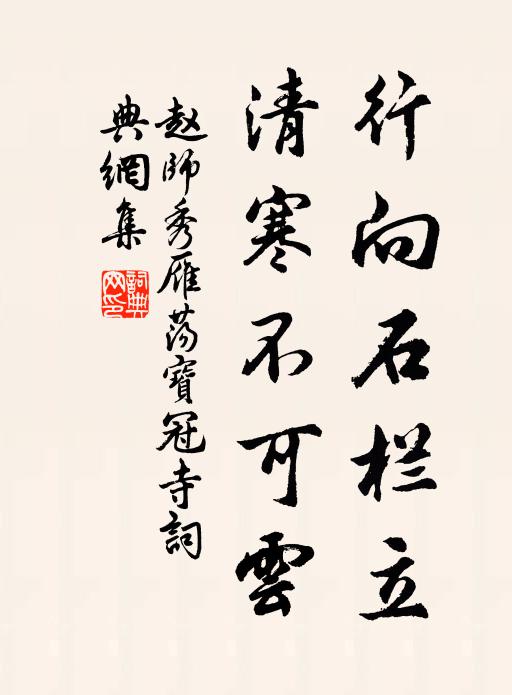 行向石栏立
清寒不可雲
赵師秀雁荡寶冠寺詞
典網集
詞典网印